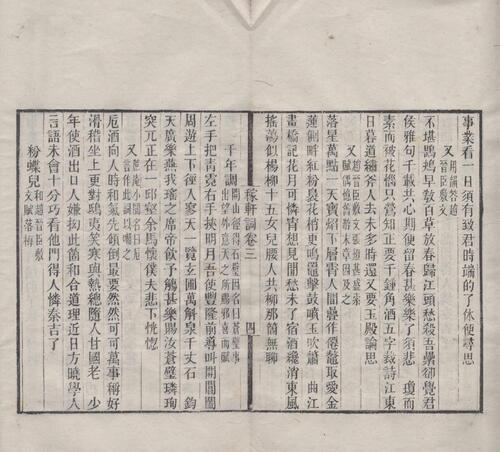 事業看一日須有致君時端的了休便尋思
又 用韻答趙晉臣敷文
不堪鶗鴂早教百草放春歸江頭愁殺吾纍卻覺君
侯雅句千載共心期便留春甚樂樂了須悲 瓊而
素而被花惱只鶯知正要千鍾角酒五字裁詩江東
日暮道繡斧人去未多時還又要玉殿論思
又 趙晉臣敷文張燈甚盛索賦偶憶舊遊末章因及之
落星萬點一天寶焰下層霄人間疊作僊鼇最愛金
蓮側畔紅粉裊花梢更鳴鼉擊鼓噴玉吹簫 曲江
畫橋記花月可憐宵想見閒愁未了宿酒纔消東風
搖蕩似楊柳十五女兒腰人共柳那箇無聊
稼軒詞卷三 四
千年調 開山徑得石壁因名曰蒼壁事出望外意天之所賜邪喜而賦
左手把青霓右手挾明月吾使豐隆前導叫開閶闔
周遊上下徑入寥天一覽玄圃萬斛泉千丈石 鈞
天廣樂燕我瑤之席帝飲予觴甚樂賜汝蒼璧璘珣
突兀正在一邱壑余馬懷僕夫悲下恍惚
又 蔗庵小閣名曰巵言作此詞以嘲之
巵酒向人時和氣先傾倒最要然然可可萬事稱好
滑稽坐上更對鴟夷笑寒與熱總隨人甘國老 少
年使酒出口人嫌拗此箇和合道理近日方曉學人
言語未會十分巧看他們得人憐秦吉了
粉蝶兒 和趙晉臣敷文賦落梅